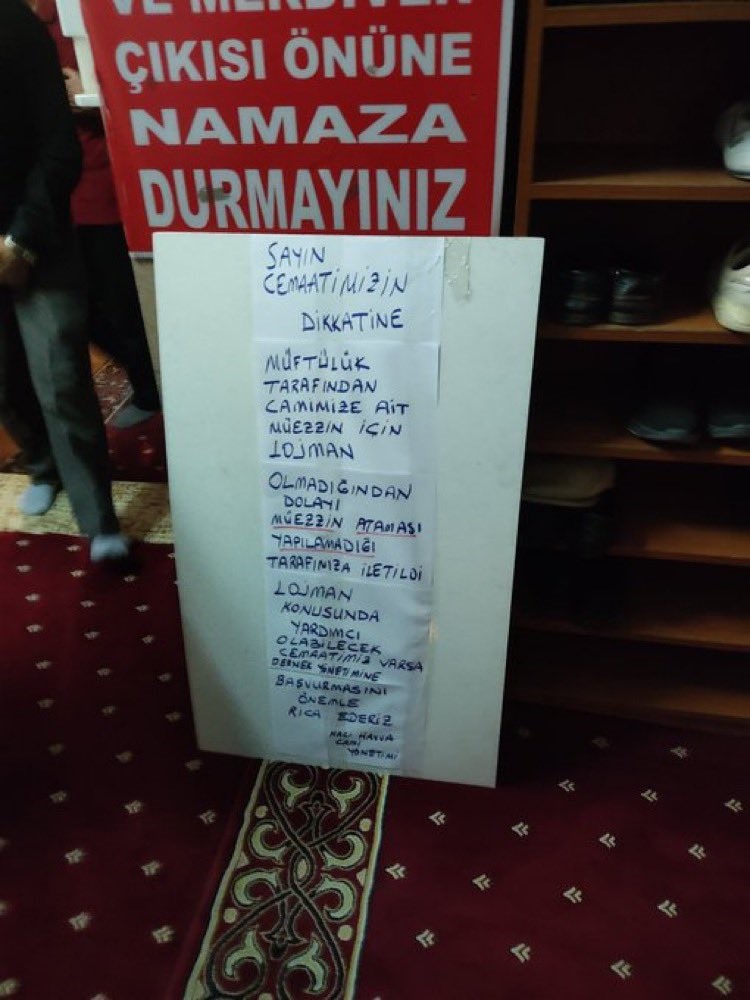 VE MERDİVEN
ÇIKISI ÖNÜNE
NAMAZA
DURMAYINIZ
SAYIN
CEMAATİMİZİN
DİKKATİNE
MÜFTÜLÜK
TARAFINDAN
CAMİMİZE AİT
MÜEZZİN İÇİN
LOJMAN
OLMADIĞINDAN
DOLAYI
MÜEZZİN ATAMASI
YAPILAMADIĞI
TARAFINIZA İLETİLDİ
LOJMAN
KONUSUNDA
YARDIMCI
OLABİLECEK
CEMAATİMİZ VARSA
DERNEK YÖNETİMİNE
BAŞVURMASINI
ÖNEMLE
RİCA EDERİZ
HACI HAVVA
CAMİ
YÖNETİMİ